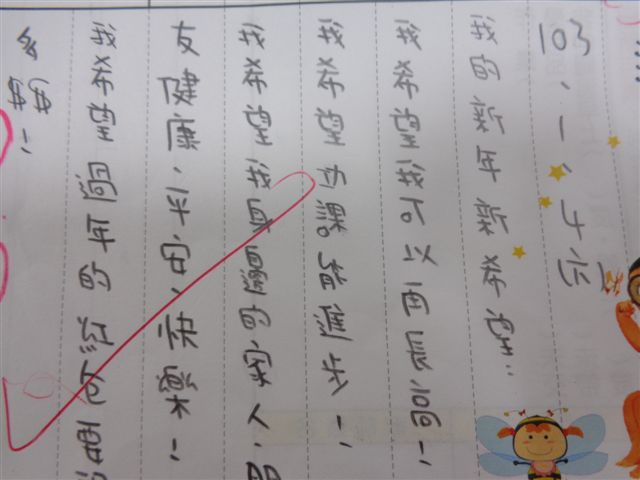 103、1、4(六)
我的新年新希望:
我希望我可以再長高!
我希望功課能進步!
我希望我身邊的家人、朋
友健康、平安、快樂!
我希望過年的紅包